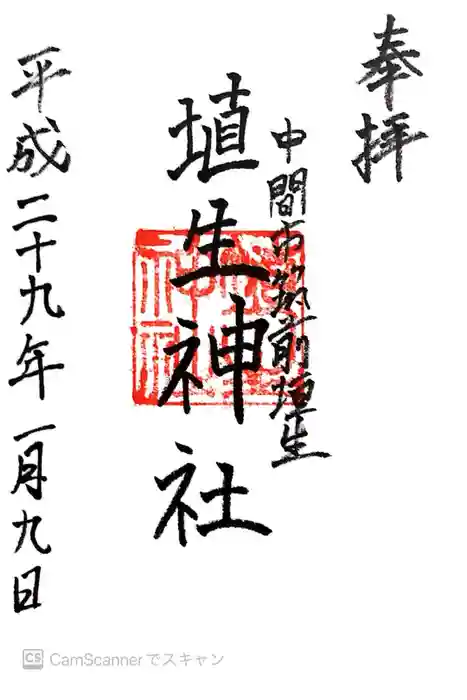 奉拝
中間市筑前埴生
埴生神社
平成二十九年一月九日
CS CamScannerでスキャン